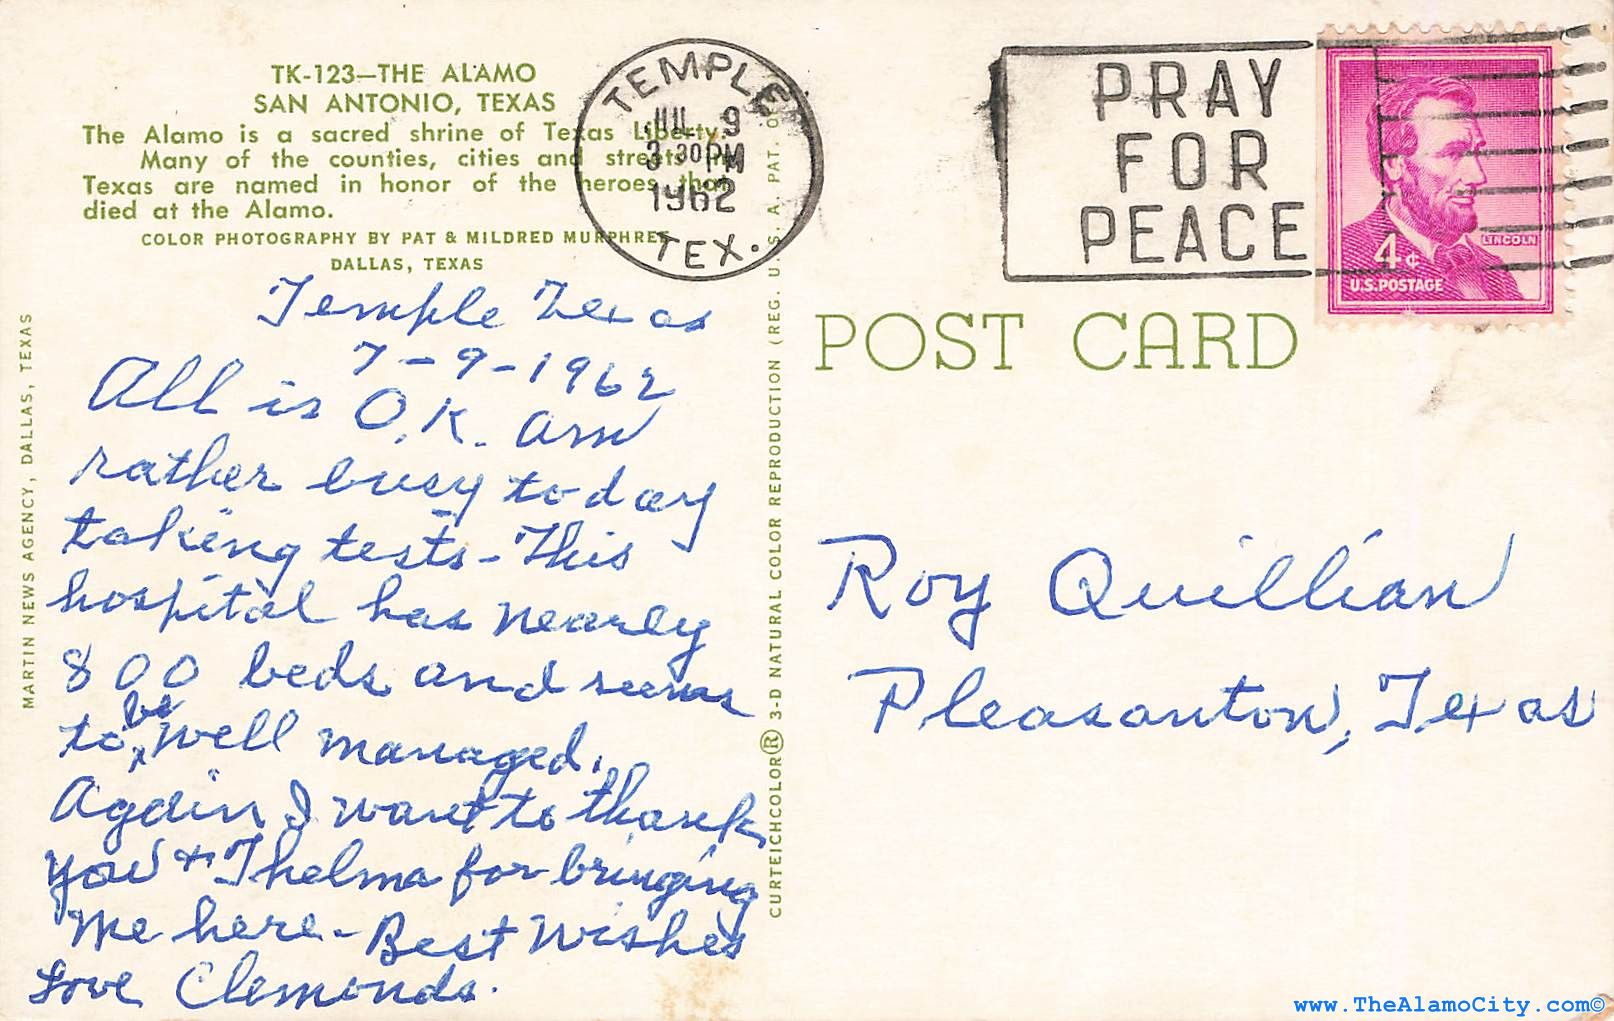 TK-123—THE ALAMO
SAN ANTONIO, TEXAS
The Alamo is a sacred shrine of Texas Liberty.
Many of the counties, cities and streets in
Texas are named in honor of the heroes that
died at the Alamo.
COLOR PHOTOGRAPHY BY PAT & MILDRED MURPHREE
DALLAS, TEXAS
MARTIN NEWS AGENCY, DALLAS, TEXAS
Temple Texas
7-9-1962
All is O.K. Am
rather busy today
taking tests - This
hospital has nearly
800 beds and seems
to be well managed.
Again I want to thank
you + Thelma for bringing
me here - Best Wishes
Love Clemonds.
CURTEICHCOLOR® 3-D NATURAL COLOR REPRODUCTION (REG. U.S.A. PAT. O
TEMPLE
JUL 9
3 30 PM
1962
TEX.
PRAY
FOR
PEACE
LINCOLN
4¢
U.S. POSTAGE
POST CARD
Roy Quillian
Pleasanton, Texas
www.TheAlamoCity.com©